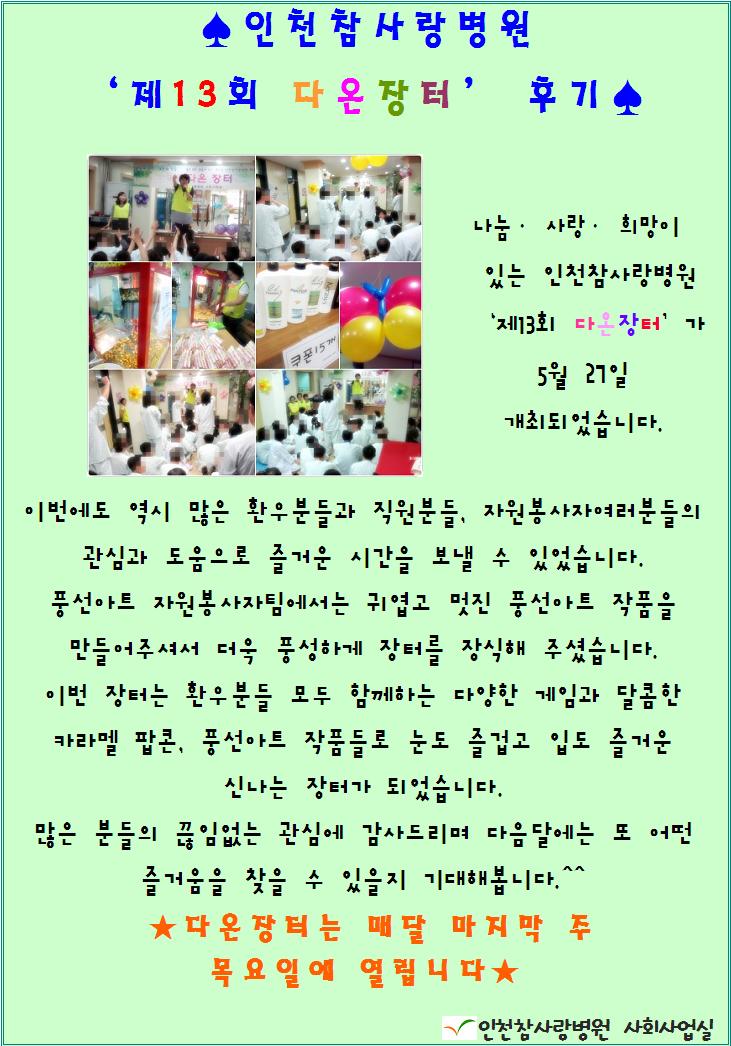 ♠인천참사랑병원
‘제13회 다온장터’ 후기♠
다온 장터
쿠폰15개
나눔· 사랑· 희망이
있는 인천참사랑병원
‘제13회 다온장터’ 가
5월 27일
개최되었습니다.
이번에도 역시 많은 환우분들과 직원분들, 자원봉사자여러분들의
관심과 도움으로 즐거운 시간을 보낼 수 있었습니다.
풍선아트 자원봉사자팀에서는 귀엽고 멋진 풍선아트 작품을
만들어주셔서 더욱 풍성하게 장터를 장식해 주셨습니다.
이번 장터는 환우분들 모두 함께하는 다양한 게임과 달콤한
카라멜 팝콘, 풍선아트 작품들로 눈도 즐겁고 입도 즐거운
신나는 장터가 되었습니다.
많은 분들의 끊임없는 관심에 감사드리며 다음달에는 또 어떤
즐거움을 찾을 수 있을지 기대해봅니다.^^
★다온장터는 매달 마지막 주
목요일에 열립니다★
인천참사랑병원 사회사업실